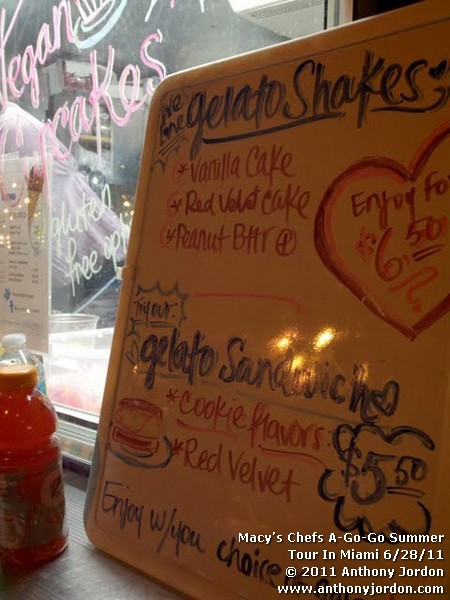 Vegan
Cakes
gluten
free opt
we
love
gelato Shakes
*Vanilla Cake
*Red Velvet Cake
*Peanut Bttr
Enjoy for
$6.50
Try our:
gelato Sandwich
*Cookie flavors
*Red Velvet
$5.50
Enjoy w/you choice
Macy's Chefs A-Go-Go Summer
Tour In Miami 6/28/11
© 2011 Anthony Jordon
www.anthonyjordon.com